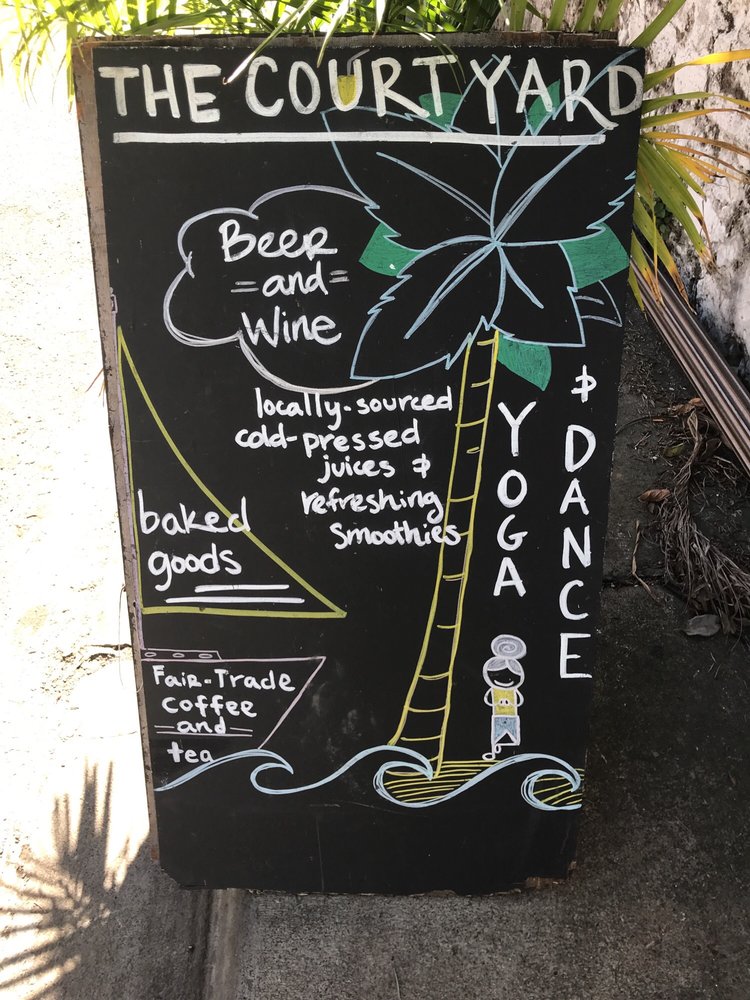 THE COURTYARD
Beer
=and=
Wine
locally-sourced
cold-pressed
juices &
refreshing
smoothies
baked
goods
Fair-Trade
coffee
-and-
tea
YOGA
& DANCE